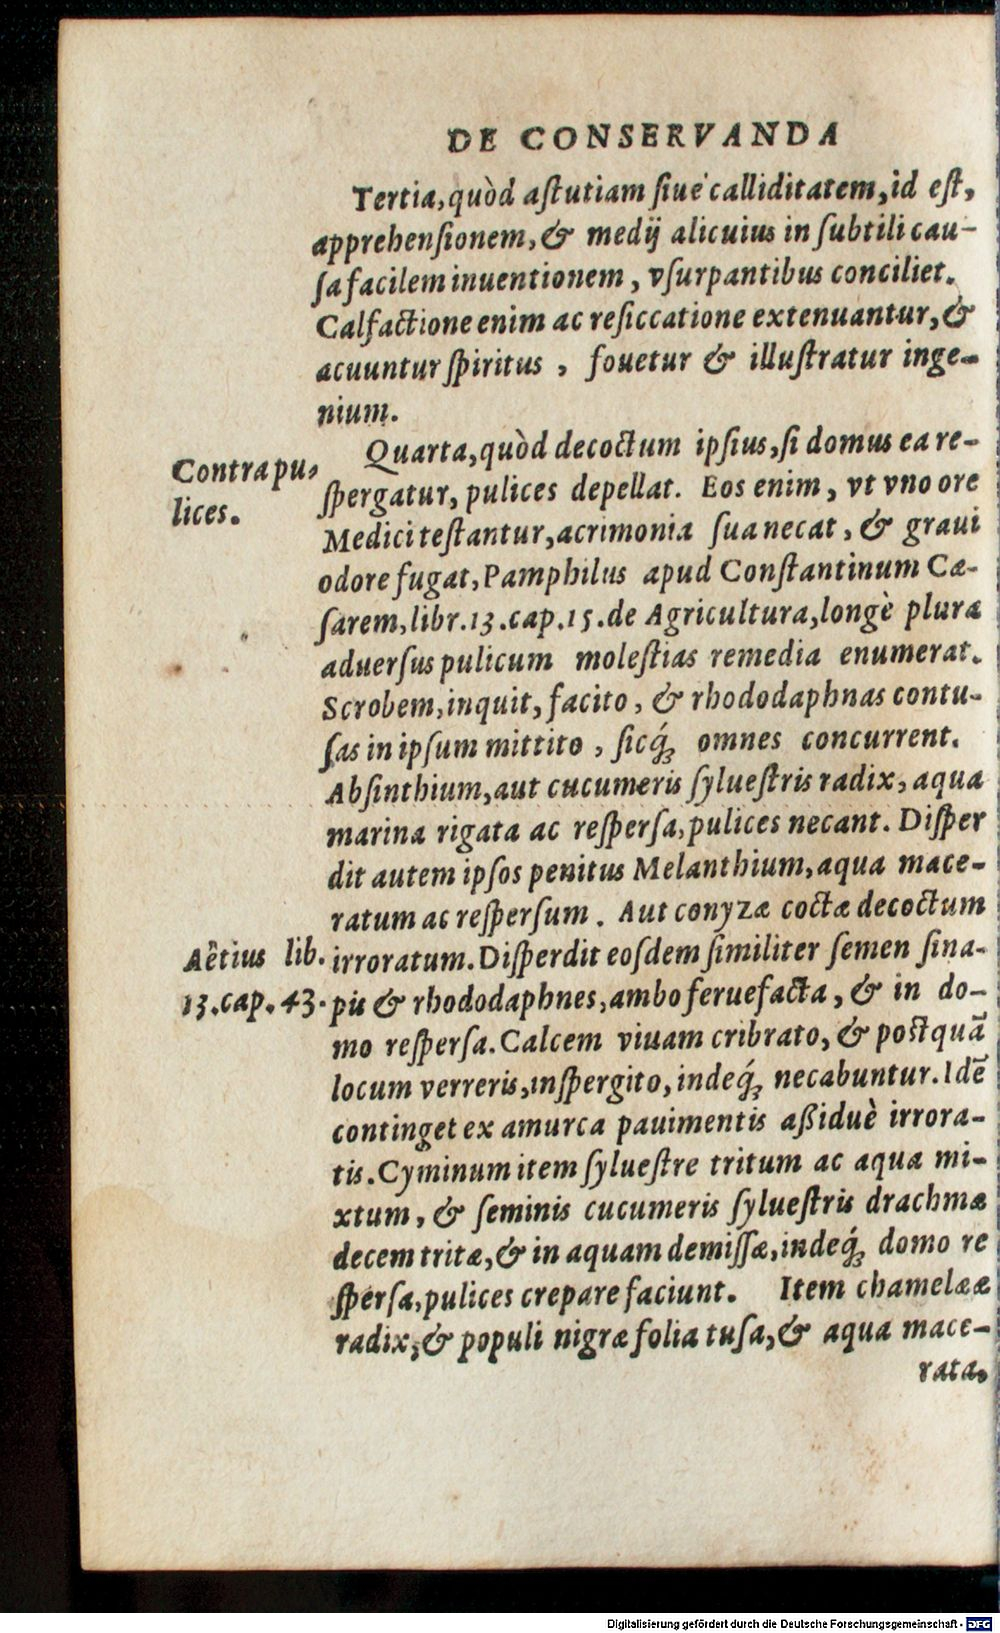 DE CONSERVANDA
Tertia, quòd aſtutiam ſiue calliditatem, id eſt,
apprehenſionem, & medij alicuius in ſubtili cau-
ſa facilem inuentionem, vſurpantibus conciliet.
Calfactione enim ac reſiccatione extenuantur, &
acuuntur ſpiritus, fouetur & illuſtratur inge-
nium.
Quarta, quòd decoctum ipſius, ſi domus ea re-
Contra pu-
ſpergatur, pulices depellat. Eos enim, vt vno ore
lices.
Medici teſtantur, acrimonia ſua necat, & graui
odore fugat, Pamphilus apud Conſtantinum Cæ-
ſarem, libr. 13. cap. 15. de Agricultura, longè plura
aduerſus pulicum moleſtias remedia enumerat.
Scrobem, inquit, facito, & rhododaphnas contu-
ſas in ipſum mittito, ſicq́; omnes concurrent.
Abſinthium, aut cucumeris ſylueſtris radix, aqua
marina rigata ac reſperſa, pulices necant. Diſper
dit autem ipſos penitus Melanthium, aqua mace-
ratum ac reſperſum. Aut conyzæ coctæ decoctum
Aëtius lib.
irroratum. Diſperdit eoſdem ſimiliter ſemen ſina-
13. cap. 43.
pis & rhododaphnes, ambo feruefacta, & in do-
mo reſperſa. Calcem viuam cribrato, & poſtquã
locum verreris, inſpergito, indeq́; necabuntur. Idẽ
continget ex amurca pauimentis aßiduè irrora-
tis. Cyminum item ſylueſtre tritum ac aqua mi-
xtum, & ſeminis cucumeris ſylueſtris drachmæ
decem tritæ, & in aquam demiſſæ, indeq́; domo re
ſperſa, pulices crepare faciunt. Item chamelææ
radix, & populi nigræ folia tuſa, & aqua mace-
rata,
Digitalisierung gefördert durch die Deutsche Forschungsgemeinschaft - DFG